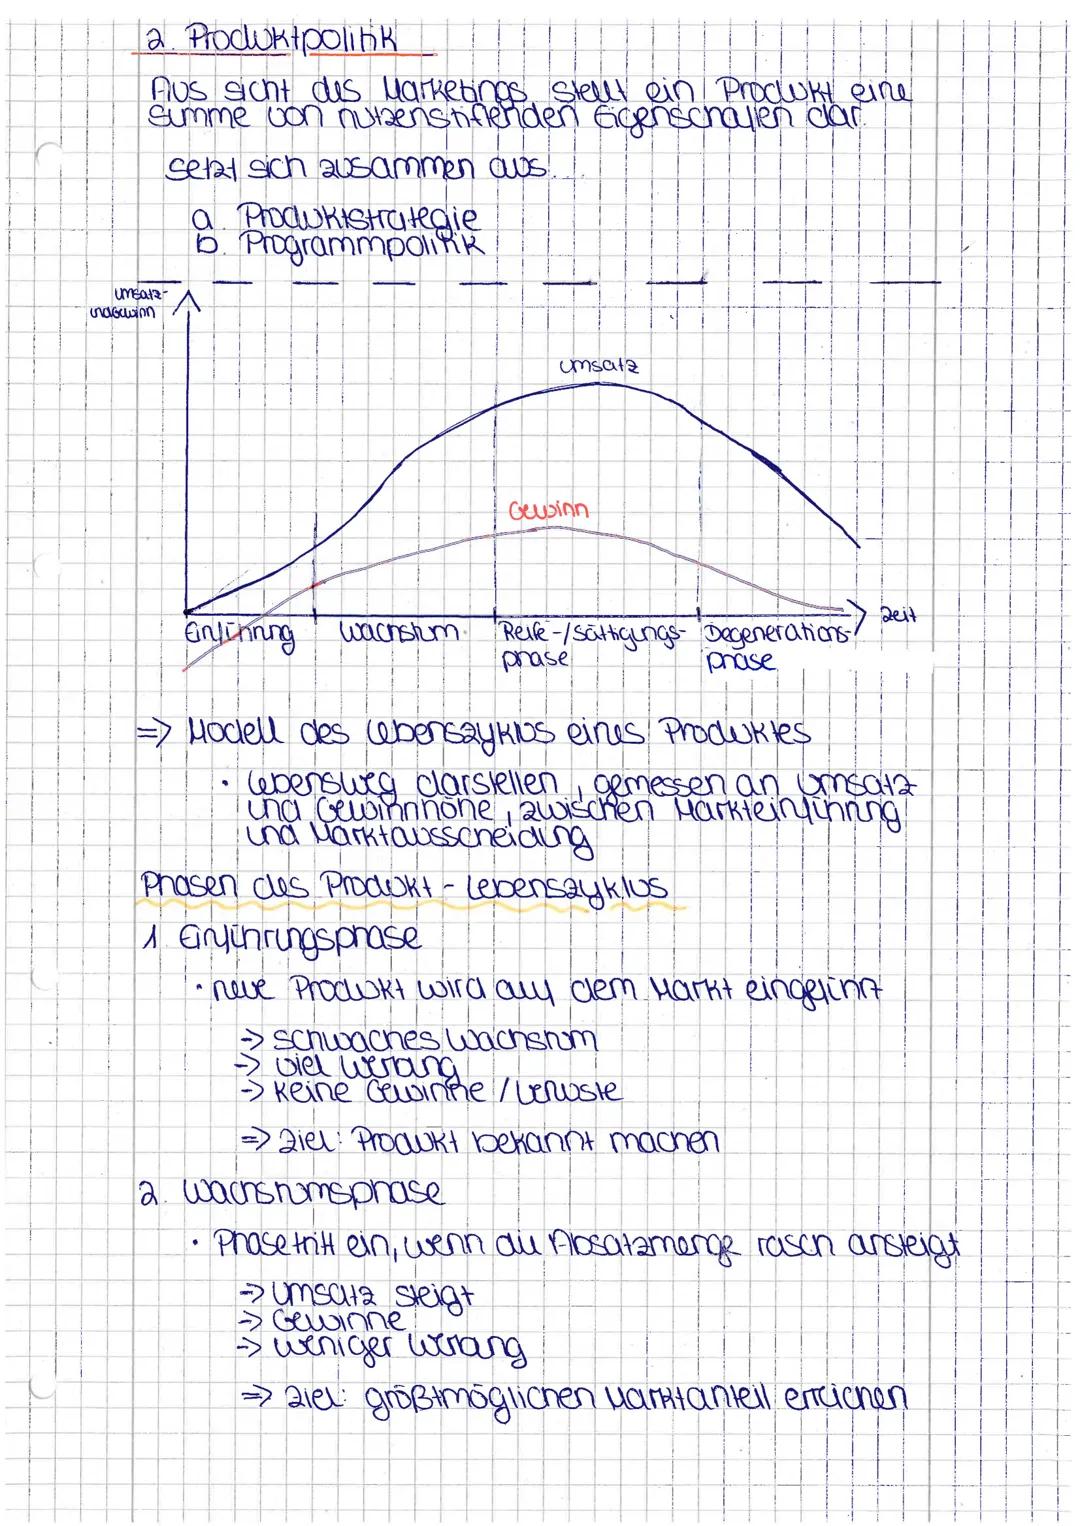 2. Produktpolitik
Aus sicht des Marketings stellt ein Produkt eine
Summe von nutzenstiftenden Eigenschaften dar.
setzt sich zusammen aus...
a. Produktstrategie
b. Programmpolitik
Umsatz-
und Gewinn
Umsatz
Gewinn
Zeit
Einführung
Wachstum
Reife-/Sättigungs-
phase
Degenerations-
phase
=> Modell des Lebenszyklus eines Produktes
• Lebensweg darstellen, gemessen an Umsatz
und Gewinnhöhe, zwischen Markteinführung
und Marktausscheidung
Phasen des Produkt-Lebenszyklus
1. Einführungsphase
• neue Produkt wird auf dem Markt eingeführt
-> schwaches Wachstum
-> viel Werbung
-> keine Gewinne / Verluste
=> Ziel: Produkt bekannt machen
2. Wachstumsphase
• Phase tritt ein, wenn die Absatzmenge rasch ansteigt
-> Umsatz steigt
-> Gewinne
-> weniger Werbung
=> Ziel: größtmöglichen Marktanteil erreichen